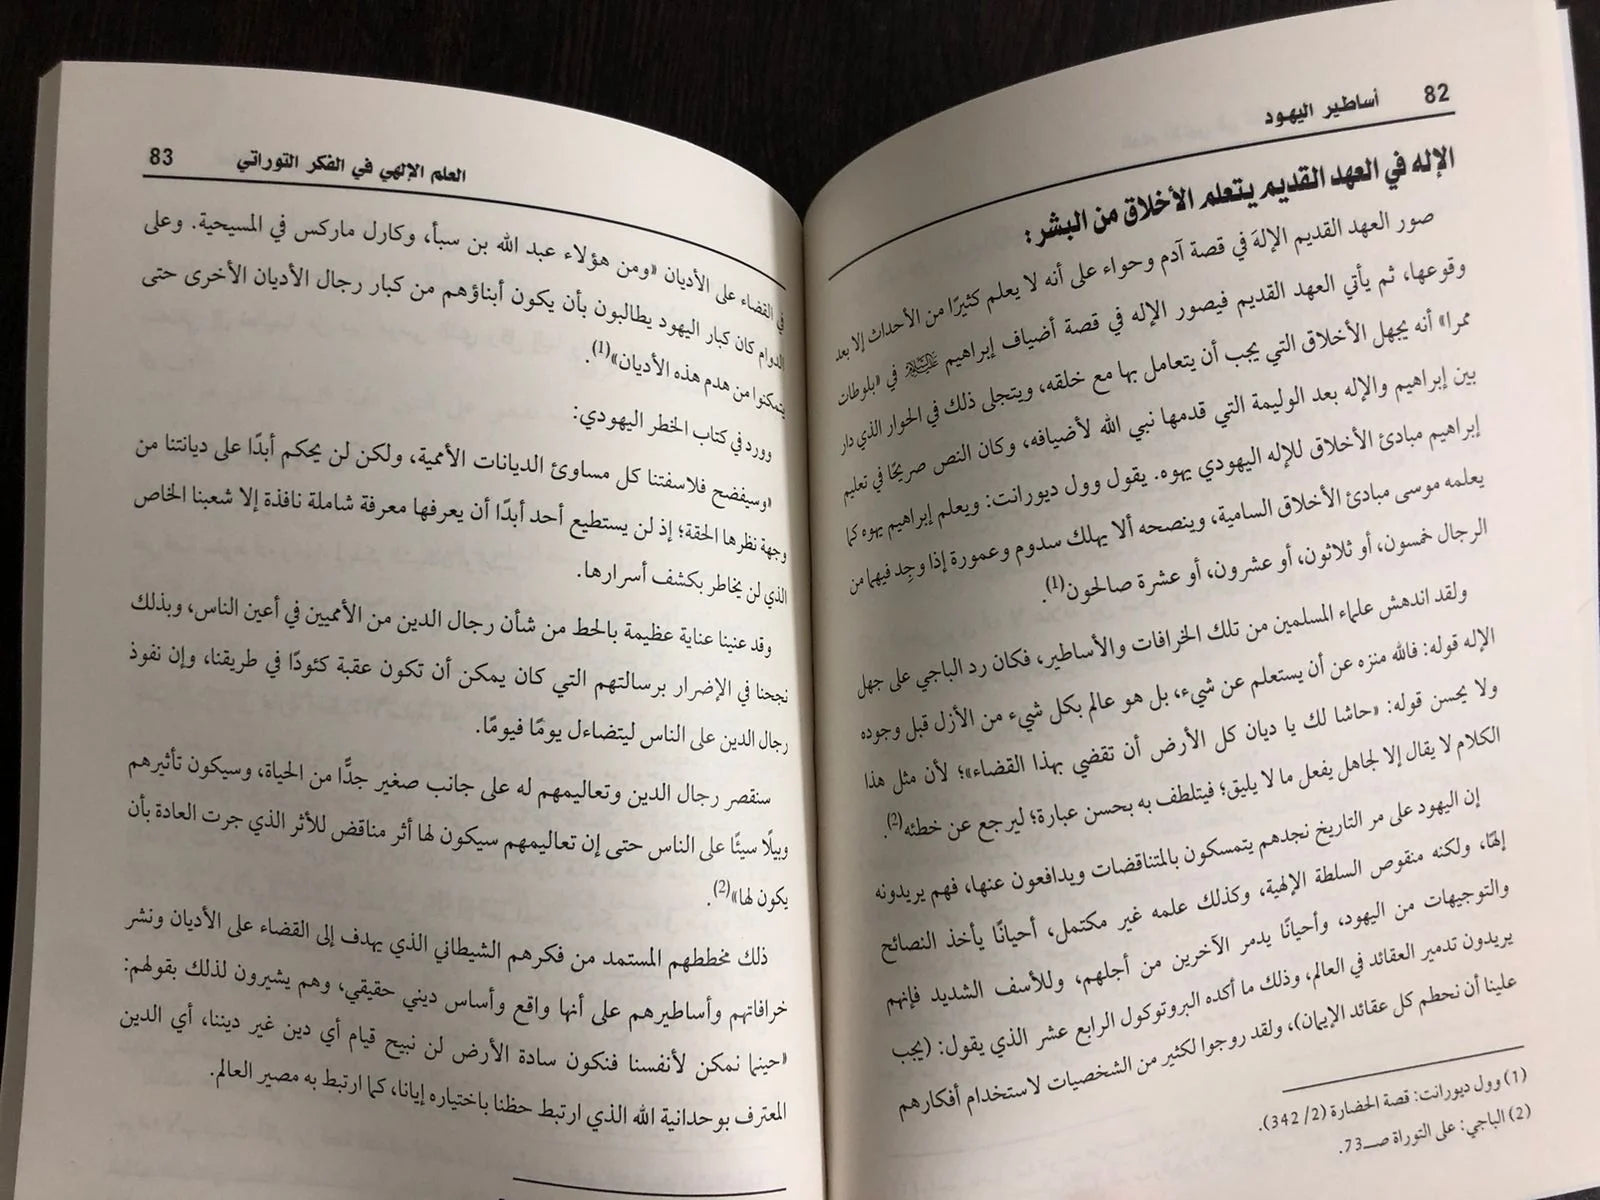 82 أساطير اليهود
الإله في العهد القديم يتعلم الأخلاق من البشر:
صور العهد القديم الإلهَ في قصة آدم وحواء على أنه لا يعلم كثيرًا من الأحداث إلا بعد
وقوعها، ثم يأتي العهد القديم فيصور الإله في قصة أضياف إبراهيم عليه السلام في «بلوطات
ممرا» أنه يجهل الأخلاق التي يجب أن يتعامل بها مع خلقه، ويتجلى ذلك في الحوار الذي دار
بين إبراهيم والإله بعد الوليمة التي قدمها نبي الله لأضيافه، وكان النص صريحًا في تعليم
إبراهيم مبادئ الأخلاق للإله اليهودي يهوه. يقول وول ديورانت: ويعلم إبراهيم يهوه كما
يعلمه موسى مبادئ الأخلاق السامية، وينصحه ألا يهلك سدوم وعمورة إذا وجِد فيهما من
الرجال خمسون، أو ثلاثون، أو عشرون، أو عشرة صالحون(1).
ولقد اندهش علماء المسلمين من تلك الخرافات والأساطير، فكان رد الباجي على جهل
الإله قوله: فالله منزه عن أن يستعلم عن شيء، بل هو عالم بكل شيء من الأزل قبل وجوده
ولا يحسن قوله: «حاشا لك يا ديان كل الأرض أن تقضي بهذا القضاء»؛ لأن مثل هذا
الكلام لا يقال إلا لجاهل يفعل ما لا يليق؛ فيتلطف به بحسن عبارة؛ ليرجع عن خطئه(2).
إن اليهود على مر التاريخ نجدهم يتمسكون بالمتناقضات ويدافعون عنها، فهم يريدونه
إلهًا، ولكنه منقوص السلطة الإلهية، وكذلك علمه غير مكتمل، أحيانًا يأخذ النصائح
والتوجيهات من اليهود، وأحيانًا يدمر الآخرين من أجلهم، وللأسف الشديد فإنهم
يريدون تدمير العقائد في العالم، وذلك ما أكده البروتوكول الرابع عشر الذي يقول: (يجب
علينا أن نحطم كل عقائد الإيمان)، ولقد روجوا لكثير من الشخصيات لاستخدام أفكارهم
(1) وول ديورانت: قصة الحضارة (2/ 342).
(2) الباجي: على التوراة صـ73.
العلم الإلهي في الفكر التوراتي 83
في القضاء على الأديان «ومن هؤلاء عبد الله بن سبأ، وكارل ماركس في المسيحية. وعلى
الدوام كان كبار اليهود يطالبون بأن يكون أبناؤهم من كبار رجال الأديان الأخرى حتى
يتمكنوا من هدم هذه الأديان»(1).
وورد في كتاب الخطر اليهودي:
«وسيفضح فلاسفتنا كل مساوئ الديانات الأممية، ولكن لن يحكم أبدًا على ديانتنا من
وجهة نظرها الحقة؛ إذ لن يستطيع أحد أبدًا أن يعرفها معرفة شاملة نافذة إلا شعبنا الخاص
الذي لن يخاطر بكشف أسرارها.
وقد عنينا عناية عظيمة بالحط من شأن رجال الدين من الأمميين في أعين الناس، وبذلك
نجحنا في الإضرار برسالتهم التي كان يمكن أن تكون عقبة كئودًا في طريقنا، وإن نفوذ
رجال الدين على الناس ليتضاءل يومًا فيومًا.
سنقصر رجال الدين وتعاليمهم له على جانب صغير جدًّا من الحياة، وسيكون تأثيرهم
وبيلًا سيئًا على الناس حتى إن تعاليمهم سيكون لها أثر مناقض للأثر الذي جرت العادة بأن
يكون لها»(2).
ذلك مخططهم المستمد من فكرهم الشيطاني الذي يهدف إلى القضاء على الأديان ونشر
خرافاتهم وأساطيرهم على أنها واقع وأساس ديني حقيقي، وهم يشيرون لذلك بقولهم:
«حينما نمكن لأنفسنا فنكون سادة الأرض لن نبيح قيام أي دين غير ديننا، أي الدين
المعترف بوحدانية الله الذي ارتبط حظنا باختياره إيانا، كما ارتبط به مصير العالم.